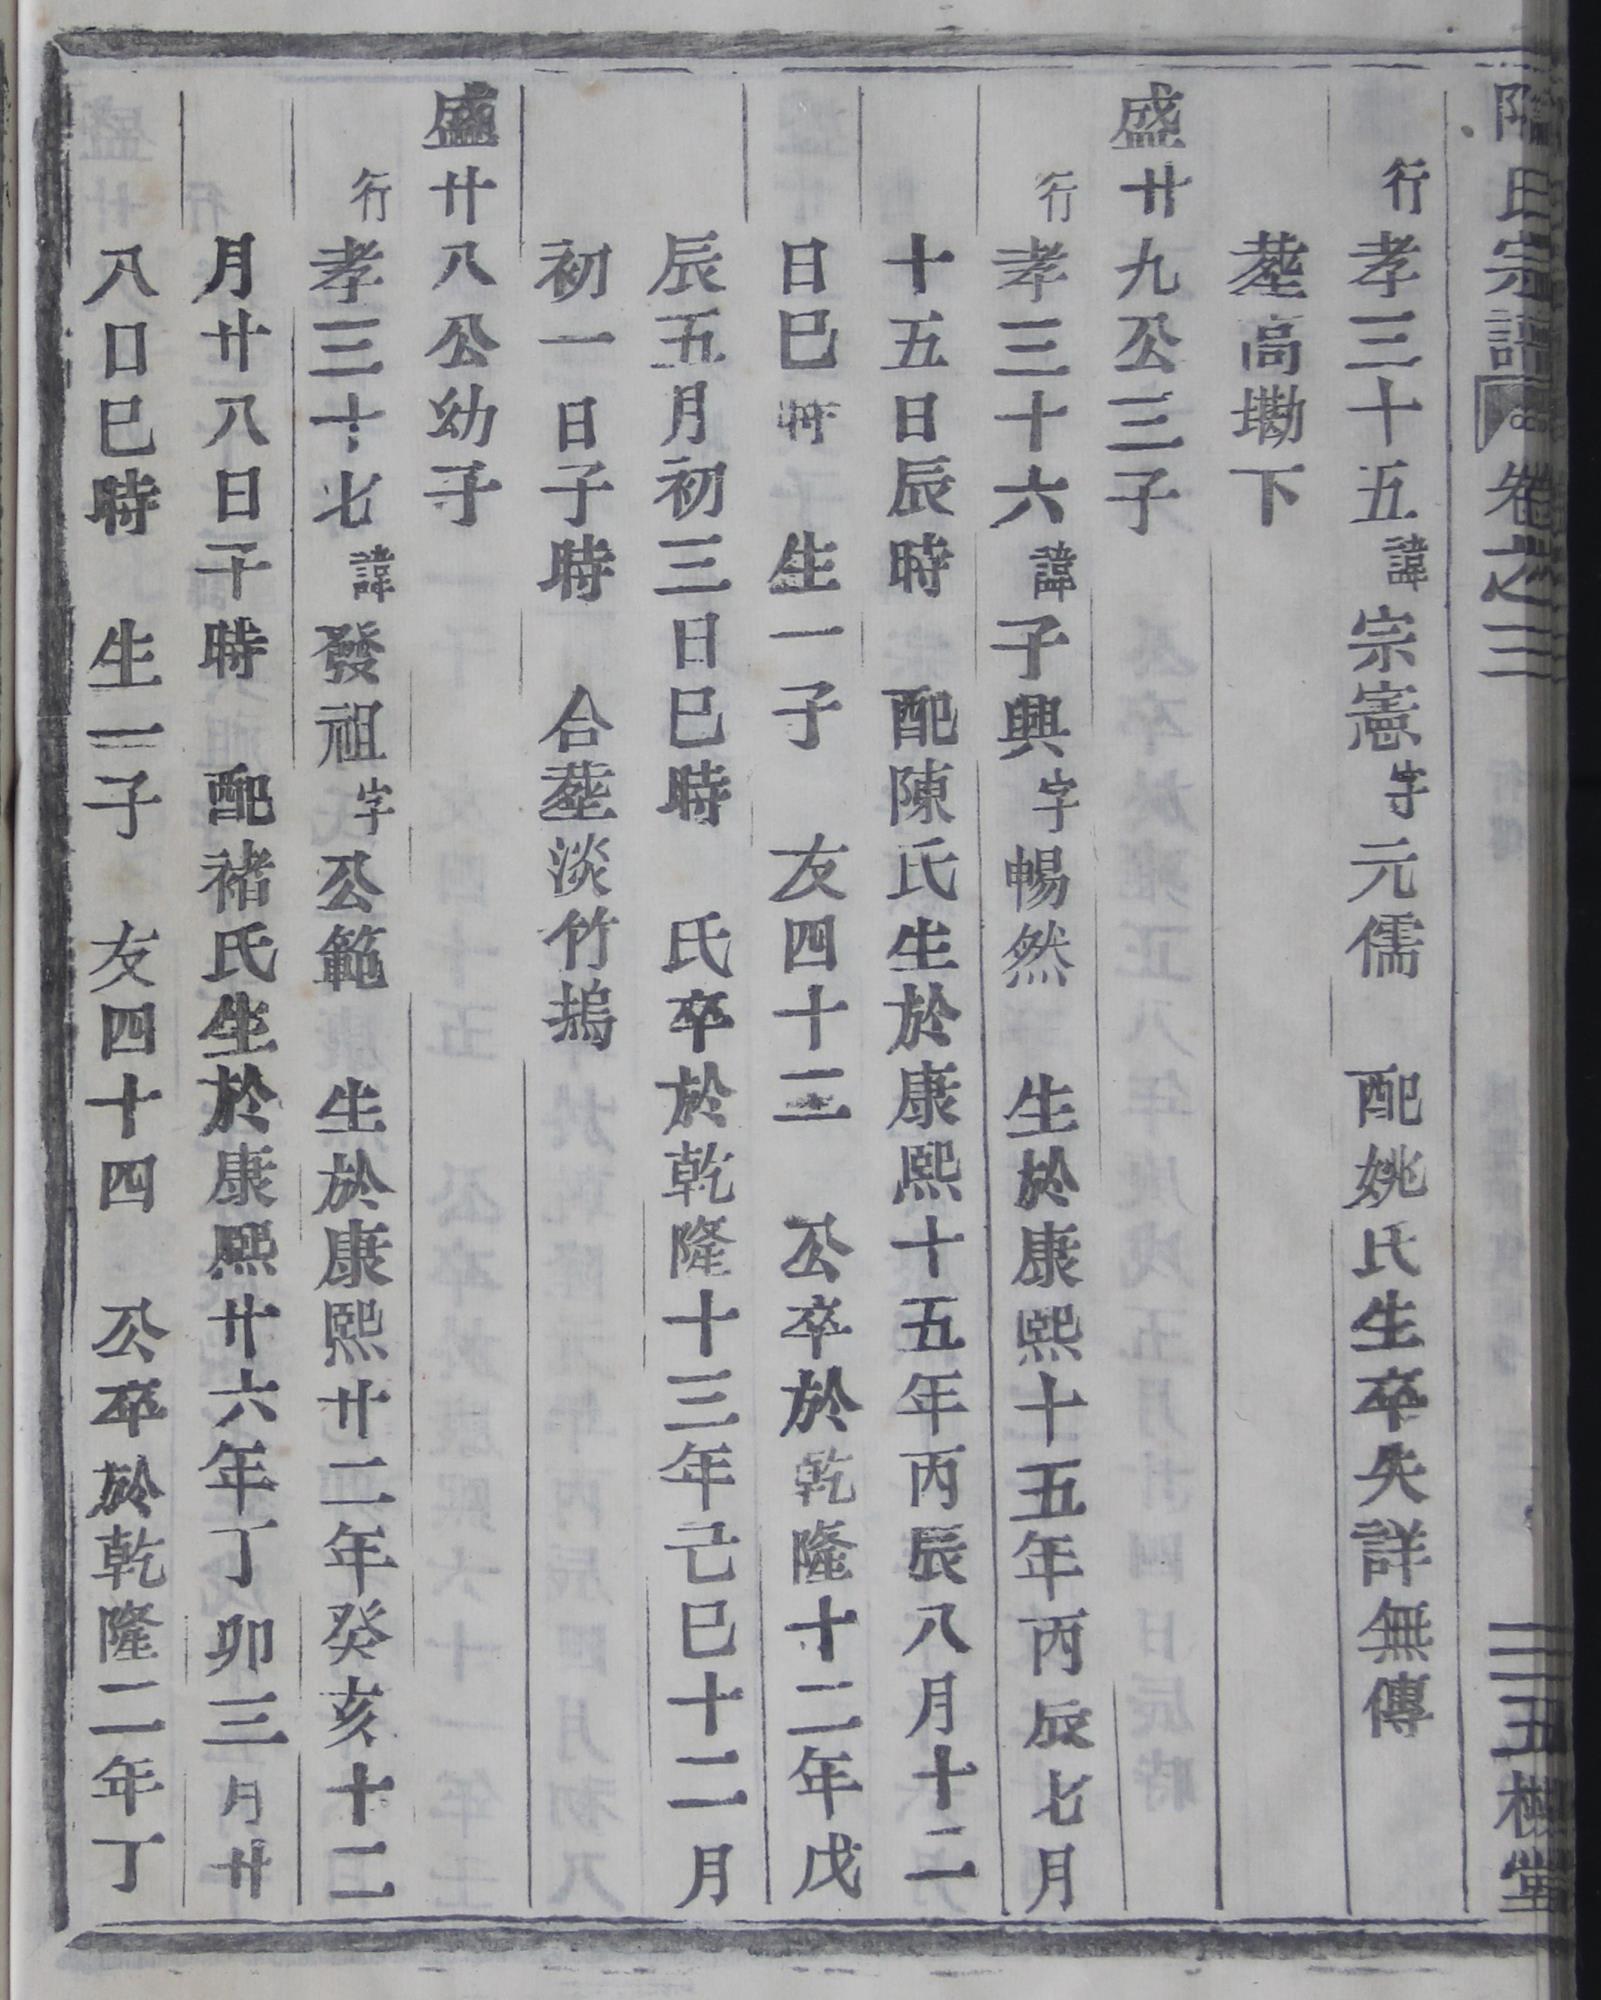 氏宗譜 卷之三 三五槐堂
行孝三十五諱宗憲字元儒 配姚氏生卒失詳無傳
塟高墈下
盛廿九公三子
行孝三十六諱子興字暢然 生於康熙十五年丙辰七月
十五日辰時 配陳氏生於康熙十五年丙辰八月十二
日巳時 生一子 友四十三 公卒於乾隆十二年戊
辰五月初三日巳時 氏卒於乾隆十三年己巳十二月
初一日子時 合塟淡竹塢
盛廿八公幼子
行孝三十七諱發祖字公範 生於康熙廿二年癸亥十二
月廿八日子時 配褚氏生於康熙廿六年丁卯三月廿
八日巳時 生一子 友四十四 公卒於乾隆二年丁